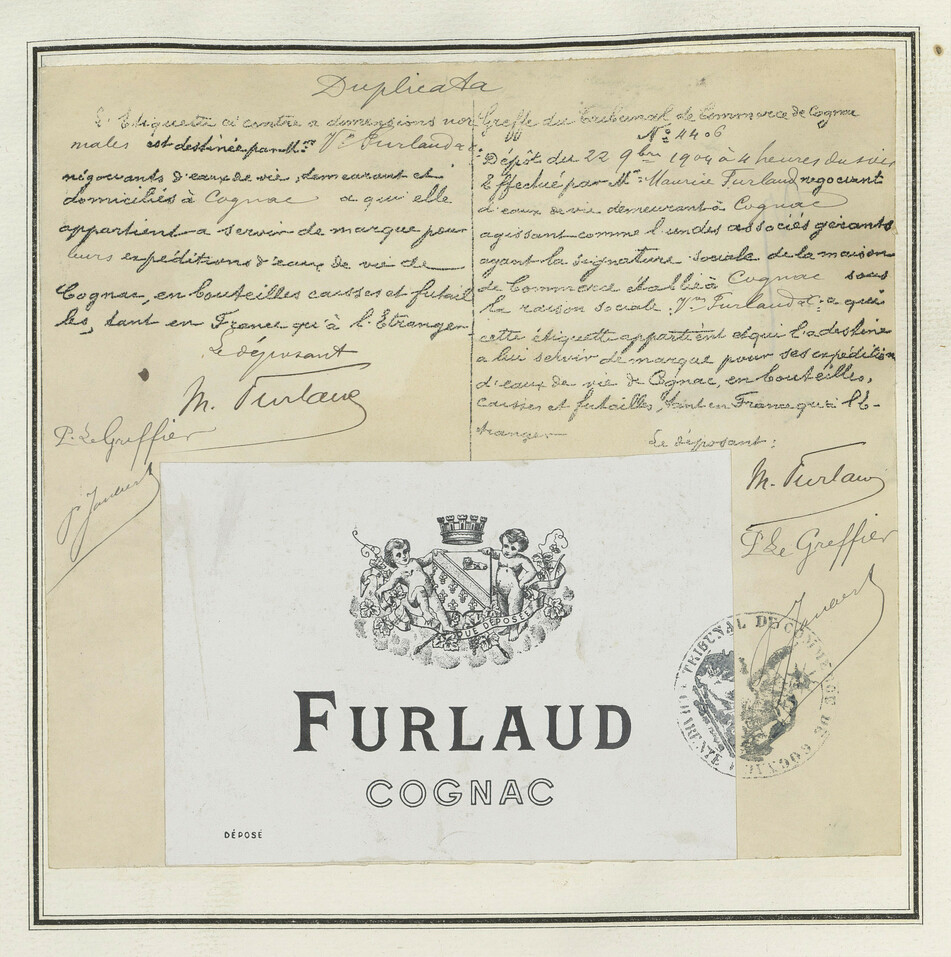 Duplicata
L'Etiquette ci contre a dimensions nor
males est destinée par M.rs Vve Furlaud &
négociants d'eaux de vie, demeurant et
domiciliés à Cognac a qui elle
appartient a servir de marque pour
leurs expéditions d'eaux de vie de
Cognac, en bouteilles caisses et futail
les, tant en France qu'à l'Étranger
Le déposant
M. Furlaud
P. Le Greffier
Greffe du Tribunal de Commerce de Cognac
No 4406
Dépôt du 22 9bre 1904 à 4 heures du soir
Effectué par Mr Maurice Furlaud négociant
d'eaux de vie demeurant à Cognac
agissant comme l'un des associés gérants
ayant la signature sociale de la maison
de Commerce établie à Cognac sous
la raison sociale: Vve Furlaud & a qui
cette étiquette appartient et qui l'a destine
a lui servir de marque pour ses expédition
d'eaux de vie de Cognac, en bouteilles,
caisses et futailles, tant en France qu'à l'É-
tranger
Le déposant:
M. Furlaud
P. Le Greffier
TRIBUNAL DE COMMERCE DE COGNAC
CHARENTE
QUE DÉPOSÉE
FURLAUD
COGNAC
DÉPOSÉ